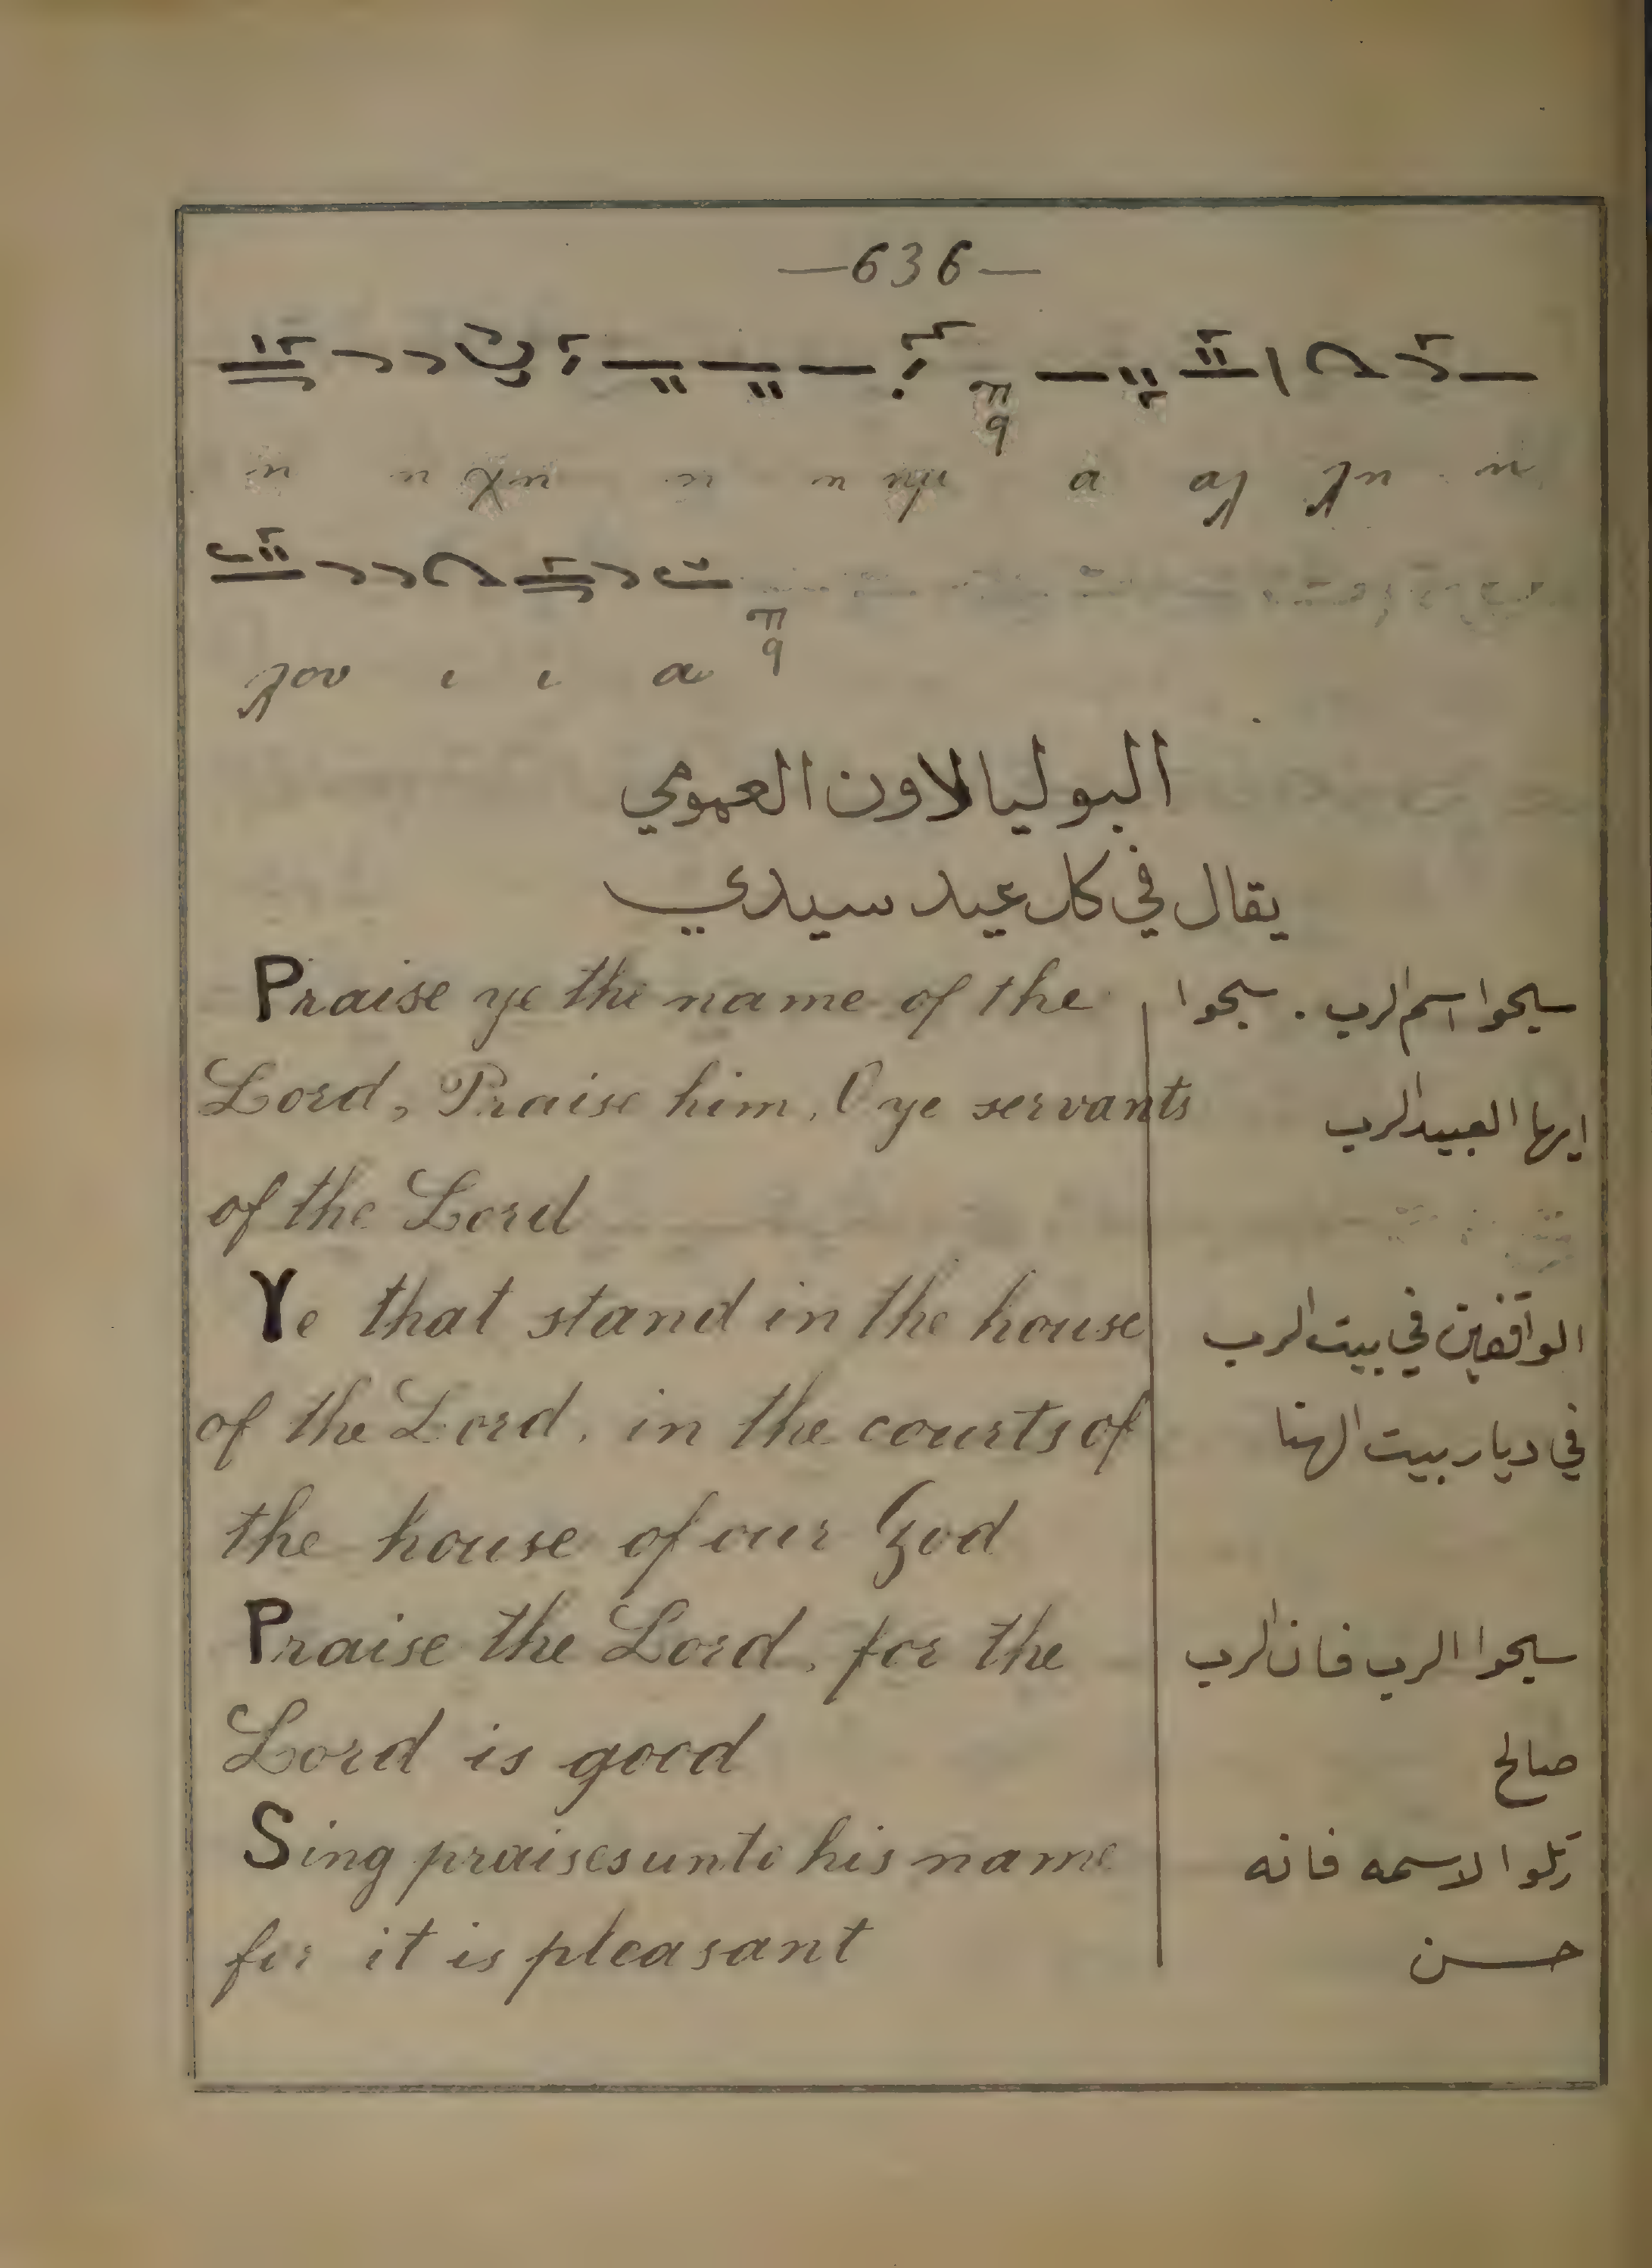 —636—
η η χη η η ημ α αλ λη η
λου ι ι α
البوليالاون العمومي
يقال في كل عيد سيدي
Praise ye the name of the
Lord, Praise him, O ye servants
of the Lord
سبحوا اسم الرب . سبحوا
ايها العبيد الرب
Ye that stand in the house
of the Lord, in the courts of
the house of our God
الواقفين في بيت الرب
في ديار بيت الهنا
Praise the Lord, for the
Lord is good
سبحوا الرب فان الرب
صالح
Sing praises unto his name
for it is pleasant
رتلوا لاسمه فانه
حسن